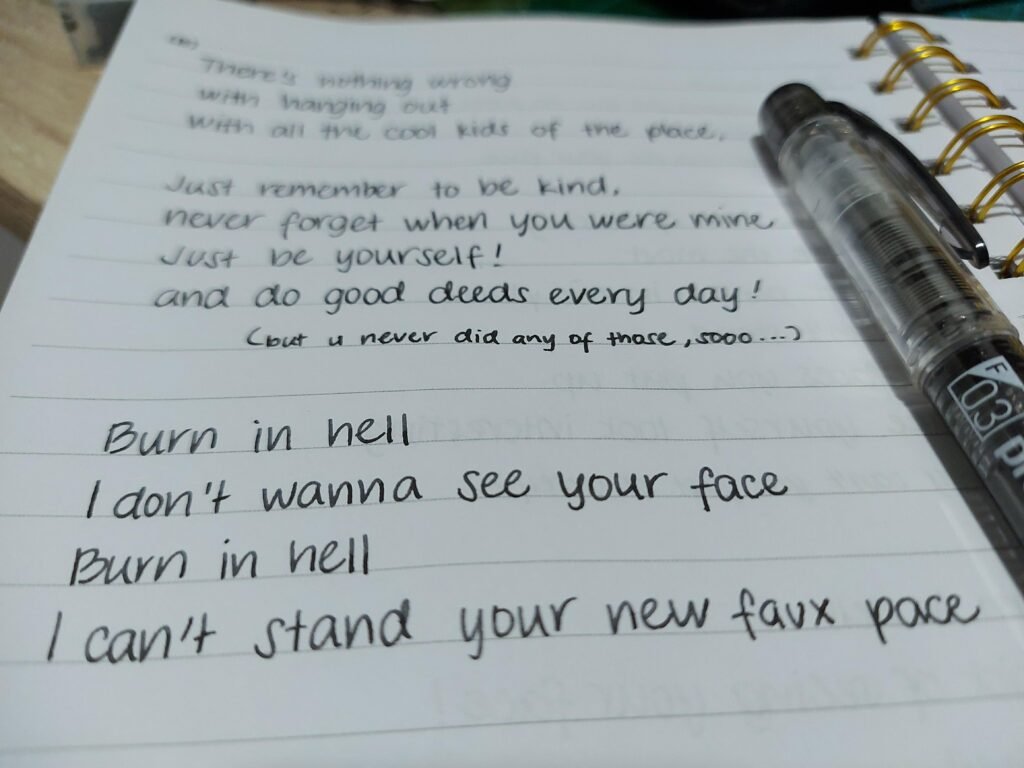 There's nothing wrong
with hanging out
with all the cool kids of the place.
Just remember to be kind,
never forget when you were mine
Just be yourself!
and do good deeds every day!
(but u never did any of those, sooo...)
Burn in hell
I don't wanna see your face
Burn in hell
I can't stand your new faux pace
F
03